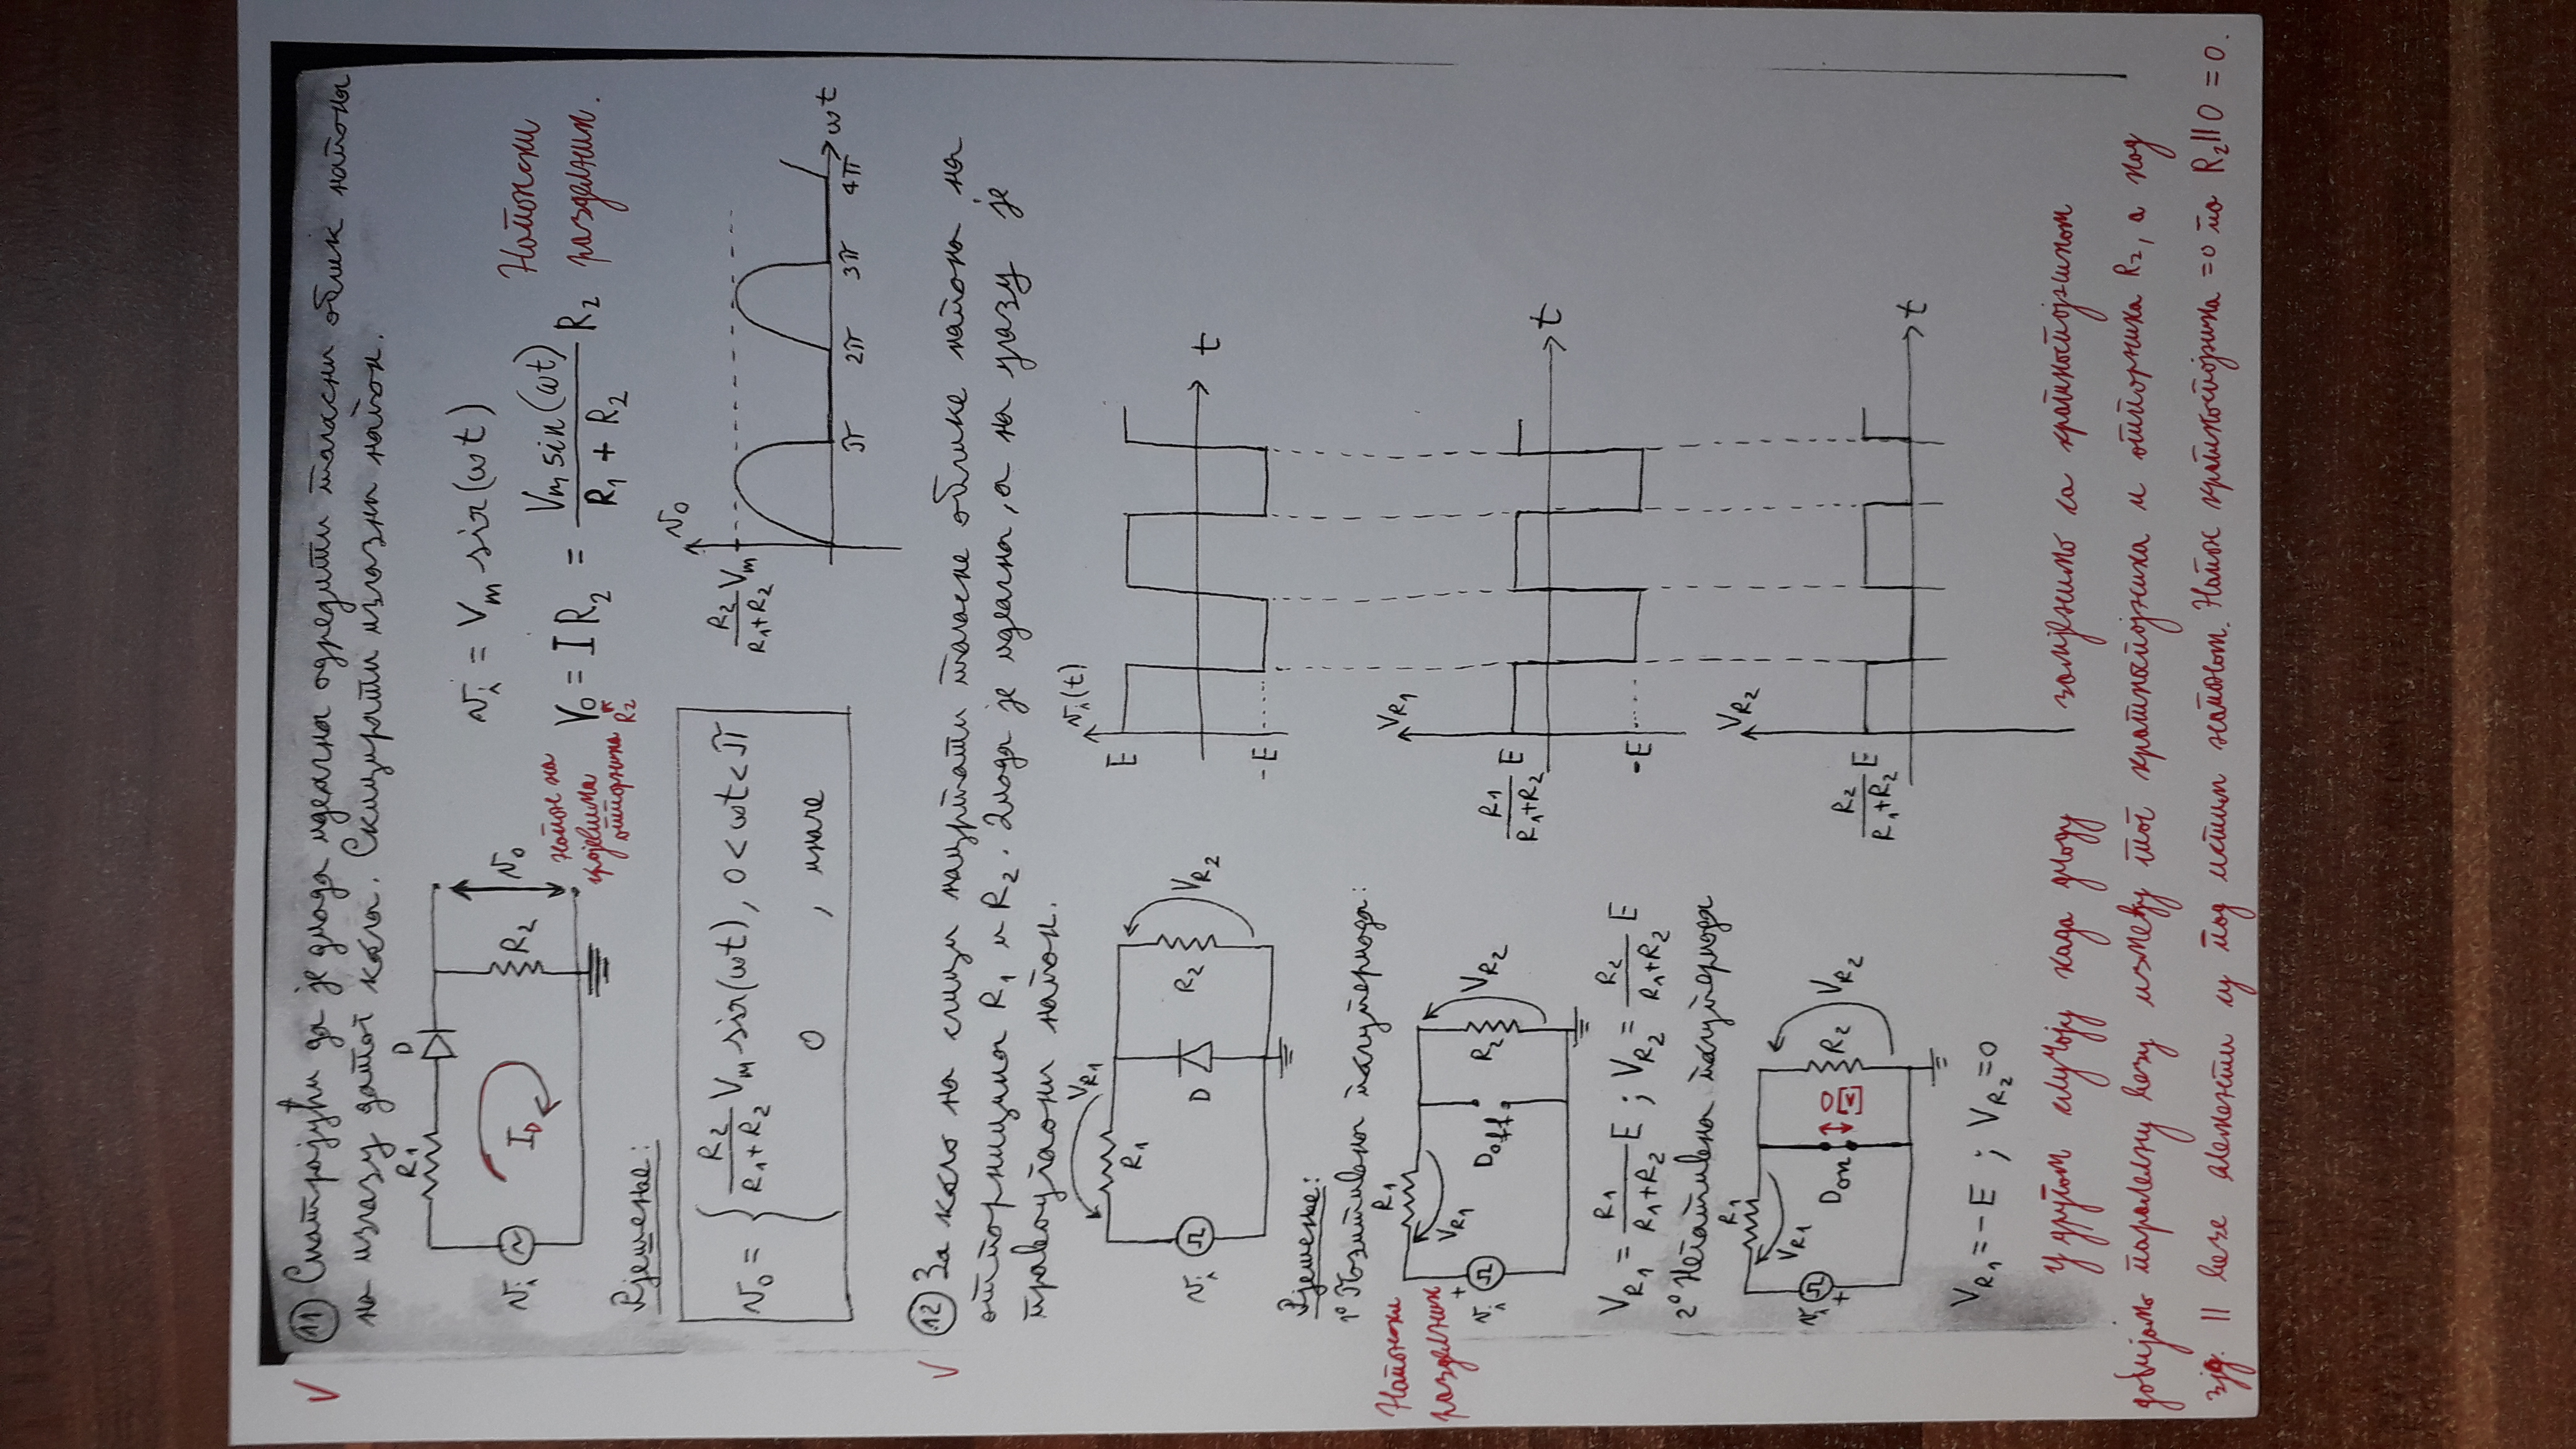 11 Сматрајући да је диода идеална одредити таласни облик напона
на излазу датог кола. Скицирати излазни напон.
R1 D
vi ID R2 vo
vi = Vm sin(ωt)
Vo = I R2 = Vm sin(ωt) / (R1 + R2) R2
R2
Напонски
разделник.
Напон на
крајевима
отпорника
Рјешење:
vo = { R2/(R1+R2) Vm sin(ωt), 0<ωt<π
0 , иначе
vo
R2/(R1+R2) Vm
π 2π 3π 4π ωt
12 За коло на слици нацртати таласне облике напона на
отпорницима R1 и R2. Диода је идеална, а на улазу је
правоугаони напон.
VR1
R1
vi D R2 VR2
vi(t)
E
t
-E
Рјешење:
1° Позитивна полупериода:
Напонски
разделник
R1
VR1
+
vi Doff R2 VR2
VR1
R1/(R1+R2) E
t
-E
VR1 = R1/(R1+R2) E ; VR2 = R2/(R1+R2) E
2° Негативна полупериода
R1
VR1
vi Don R2 VR2
+
VR2
R2/(R1+R2) E
t
VR1 = -E ; VR2 = 0
У другом случају када диоду замјенимо са краткоспојником
добијамо паралелну везу између тог краткоспојника и отпорника R2, а код
зјд. || везе елементи су под истим напоном. Напон краткоспојника =0 па R2||0 = 0.